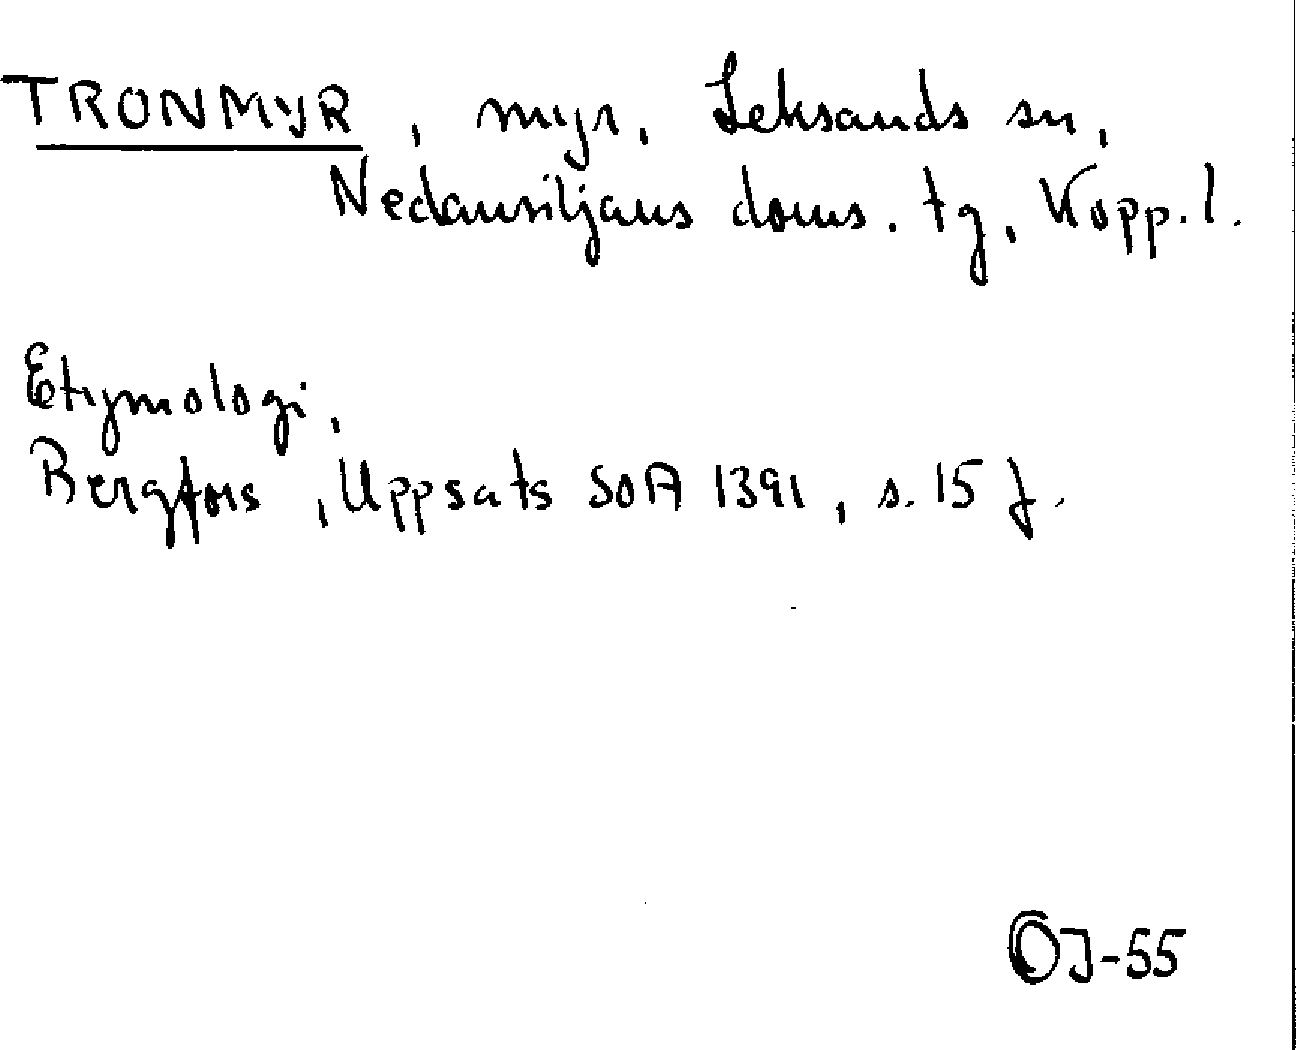 TRONMYR, myr, Leksands sn,
Nedansiljans doms. tg, Kopp. l.
Etymologi.
Bergfors, Uppsats SOA 1391, s. 15 f.
OJ-55